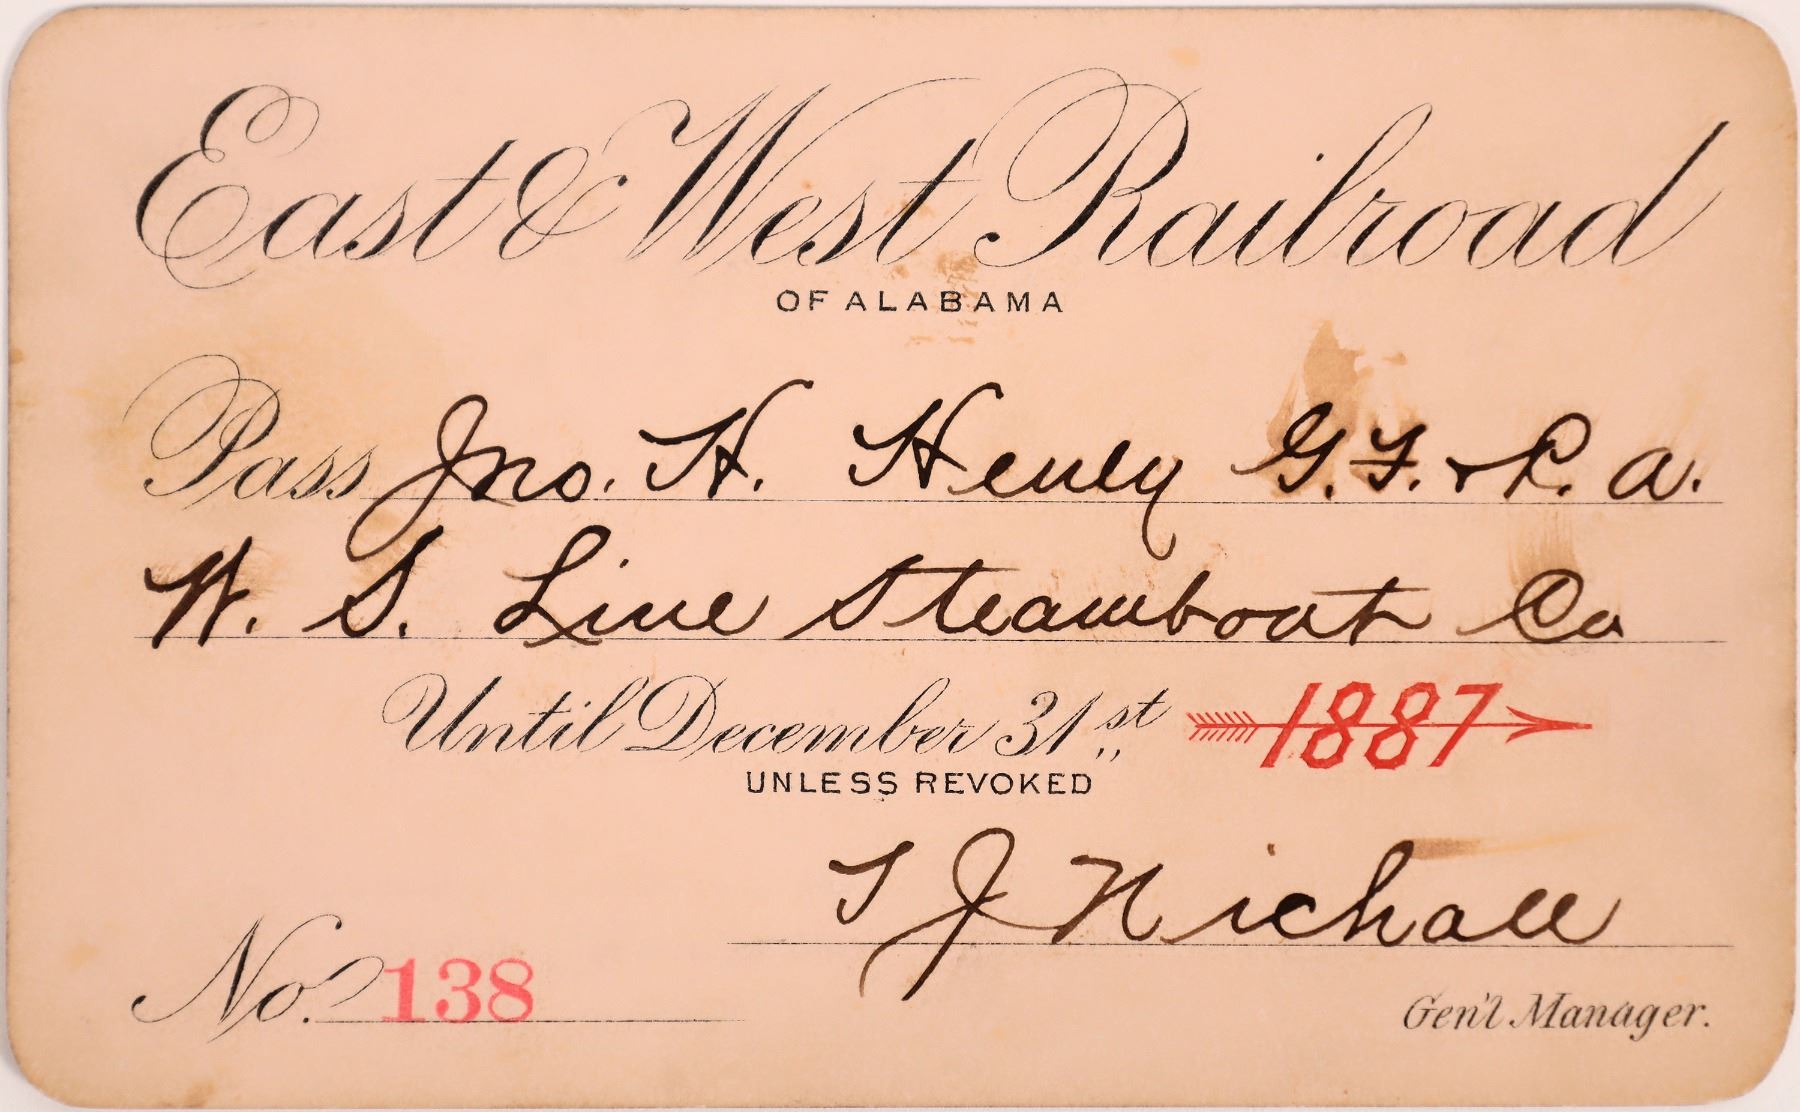 East & West Railroad
OF ALABAMA
Pass Jno. H. Henly G. F. & P. a.
W. S. Line Steamboat Co
Until December 31st 1887
UNLESS REVOKED
T J Nicholl
No. 138
Gen'l Manager.